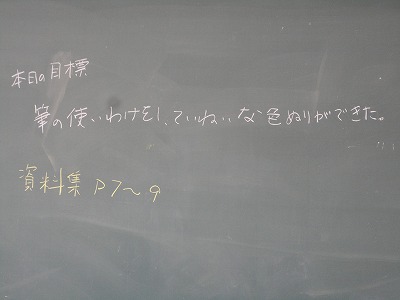 本日の目標
筆の使いわけをし、ていねいな色ぬりができた。
資料集 P7〜9